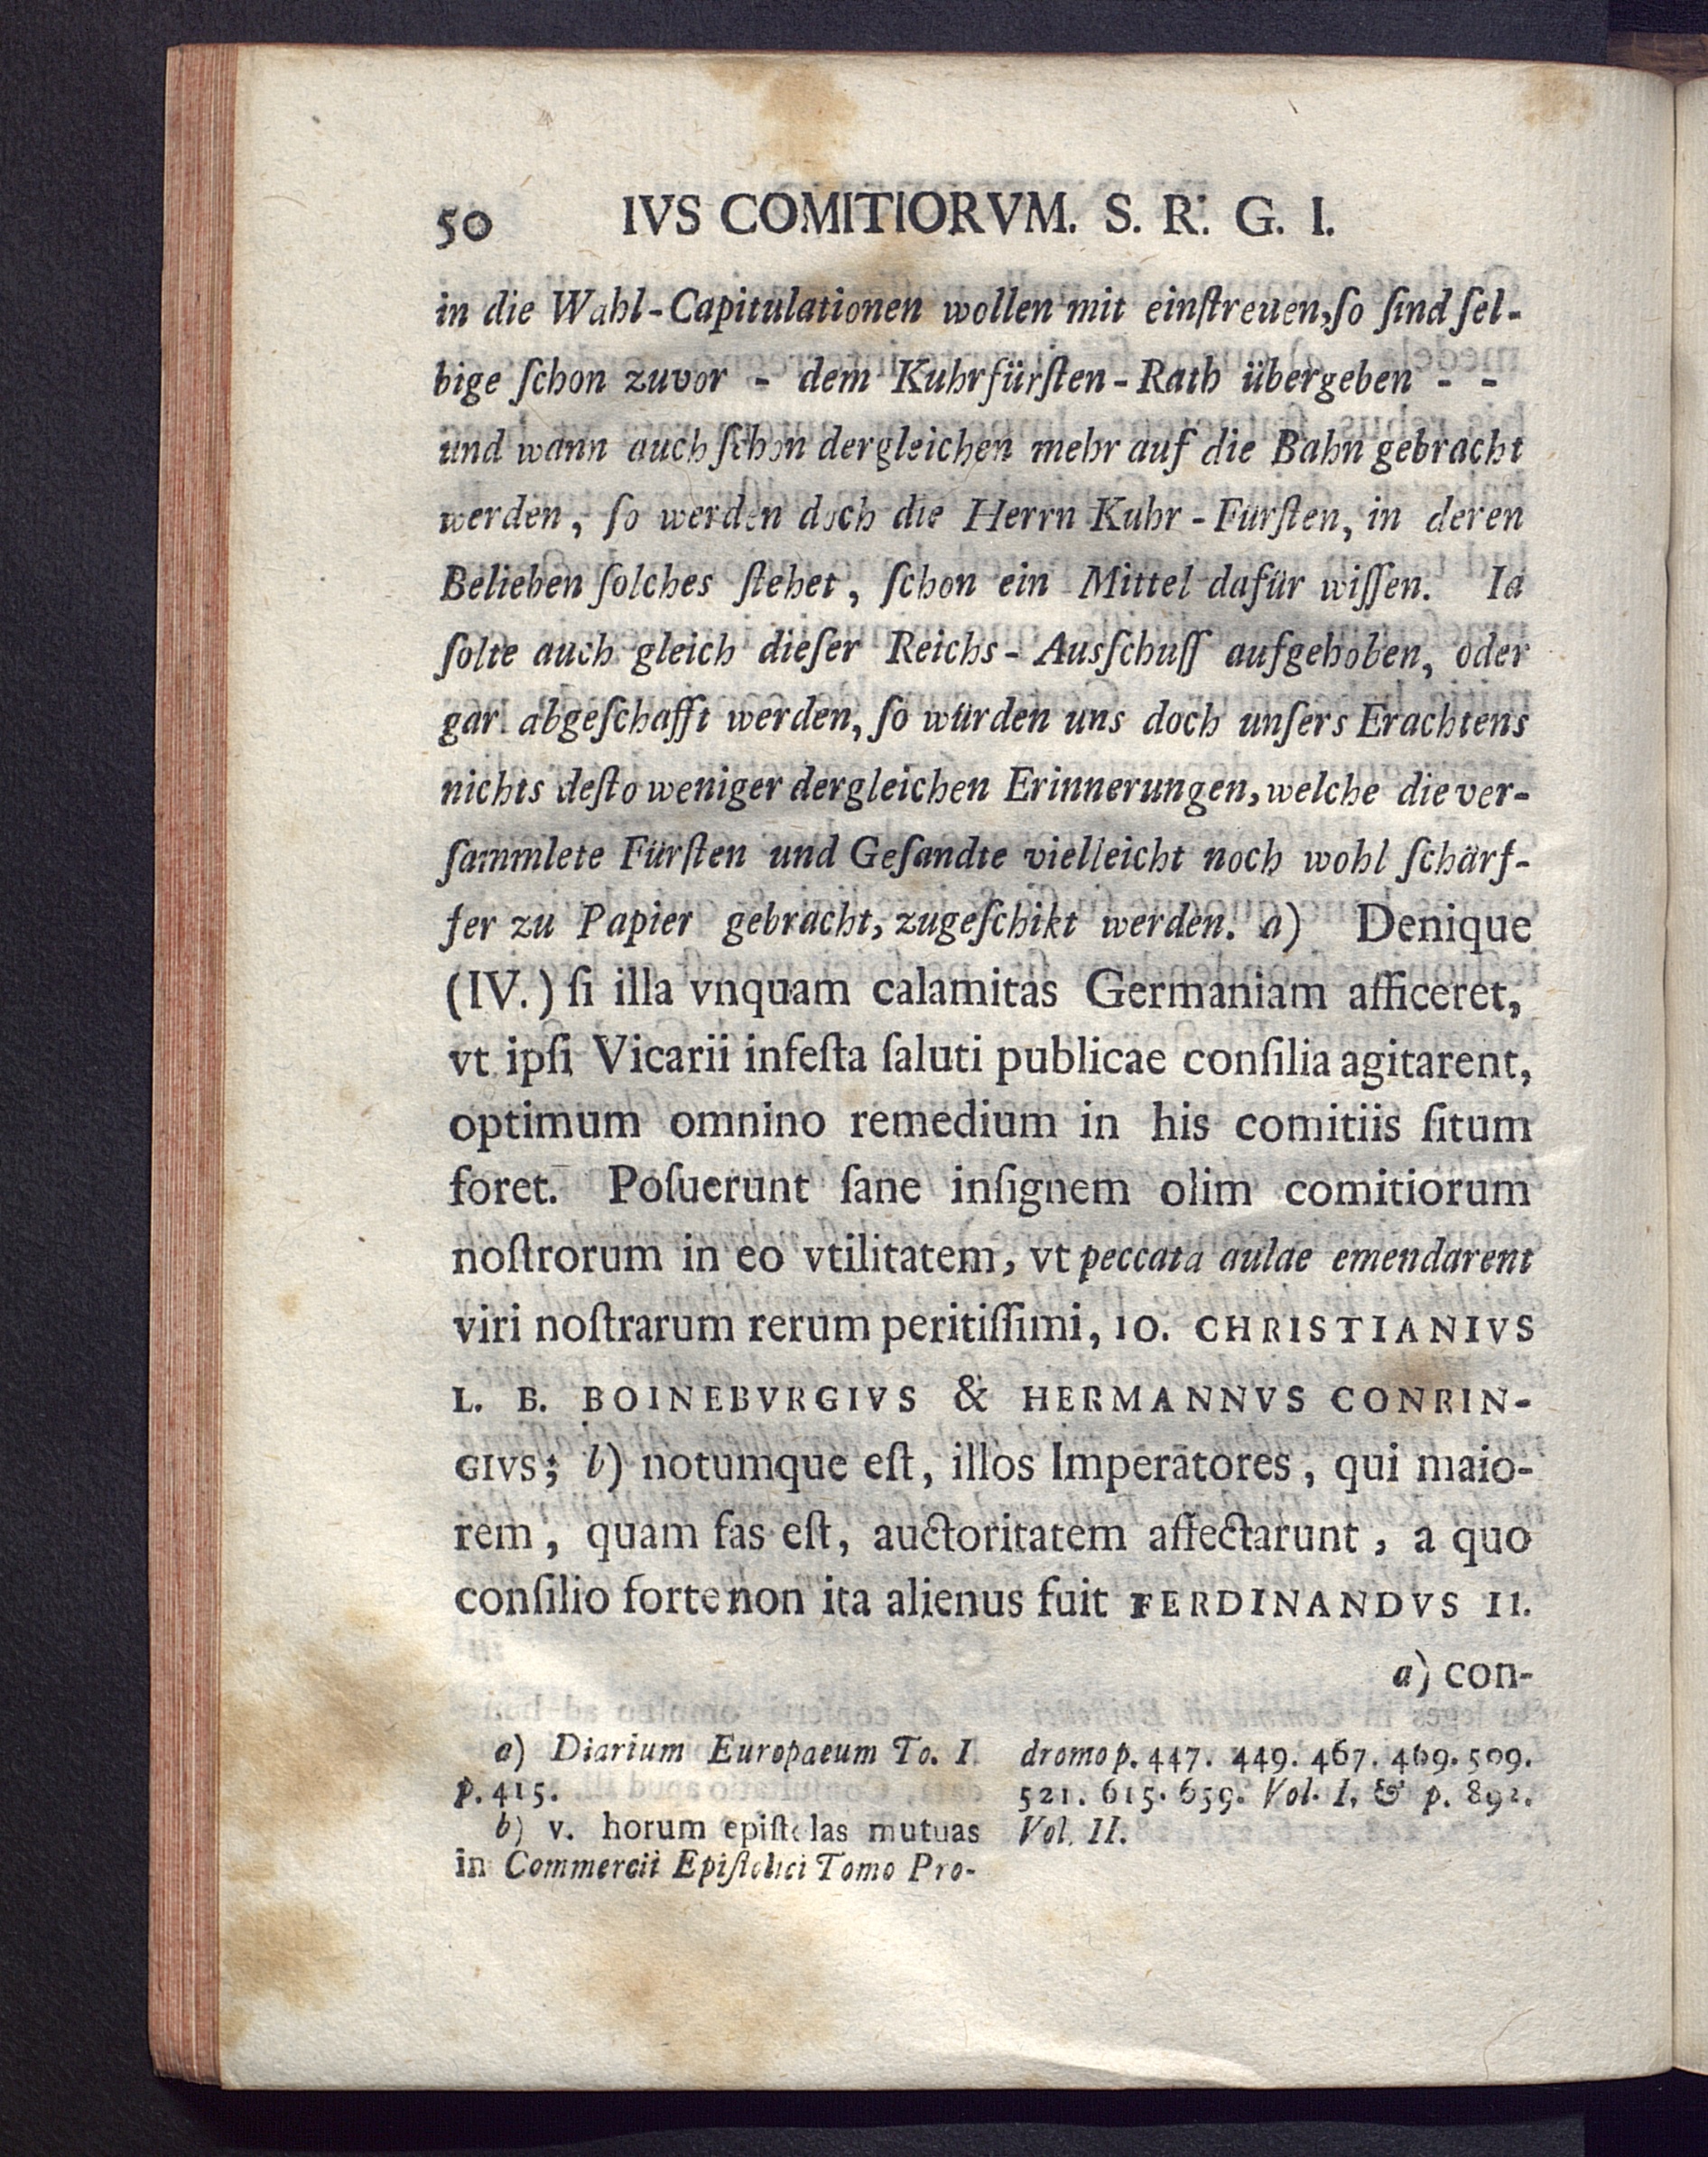 50 IVS COMITIORVM. S. R. G. I.
in die Wahl-Capitulationen wollen mit einſtreuen, ſo ſind ſel-
bige ſchon zuvor - dem Kuhrfürſten-Rath übergeben - -
und wann auch ſchon dergleichen mehr auf die Bahn gebracht
werden, ſo werden doch die Herrn Kuhr-Fürſten, in deren
Belieben ſolches ſtehet, ſchon ein Mittel dafür wiſſen. Ia
ſolte auch gleich dieſer Reichs-Ausſchuſſ aufgehoben, oder
gar abgeſchafft werden, ſo würden uns doch unſers Erachtens
nichts deſto weniger dergleichen Erinnerungen, welche die ver-
ſammlete Fürſten und Geſandte vielleicht noch wohl ſchärf-
fer zu Papier gebracht, zugeſchikt werden. a) Denique
(IV.) ſi illa vnquam calamitas Germaniam afficeret,
vt ipſi Vicarii infeſta ſaluti publicae conſilia agitarent,
optimum omnino remedium in his comitiis ſitum
foret. Poſuerunt ſane inſignem olim comitiorum
noſtrorum in eo vtilitatem, vt peccata aulae emendarent
viri noſtrarum rerum peritiſſimi, IO. CHRISTIANIVS
L. B. BOINEBVRGIVS & HERMANNVS CONRIN-
GIVS; b) notumque eſt, illos Imperatores, qui maio-
rem, quam fas eſt, auctoritatem affectarunt, a quo
conſilio forte non ita alienus fuit FERDINANDVS II.
a) con-
a) Diarium Europaeum To. I.
p. 415.
b) v. horum epiſtolas mutuas
in Commercii Epiſtolici Tomo Pro-
dromo p. 447. 449. 467. 469. 509.
521. 615. 659. Vol. I. & p. 892.
Vol. II.